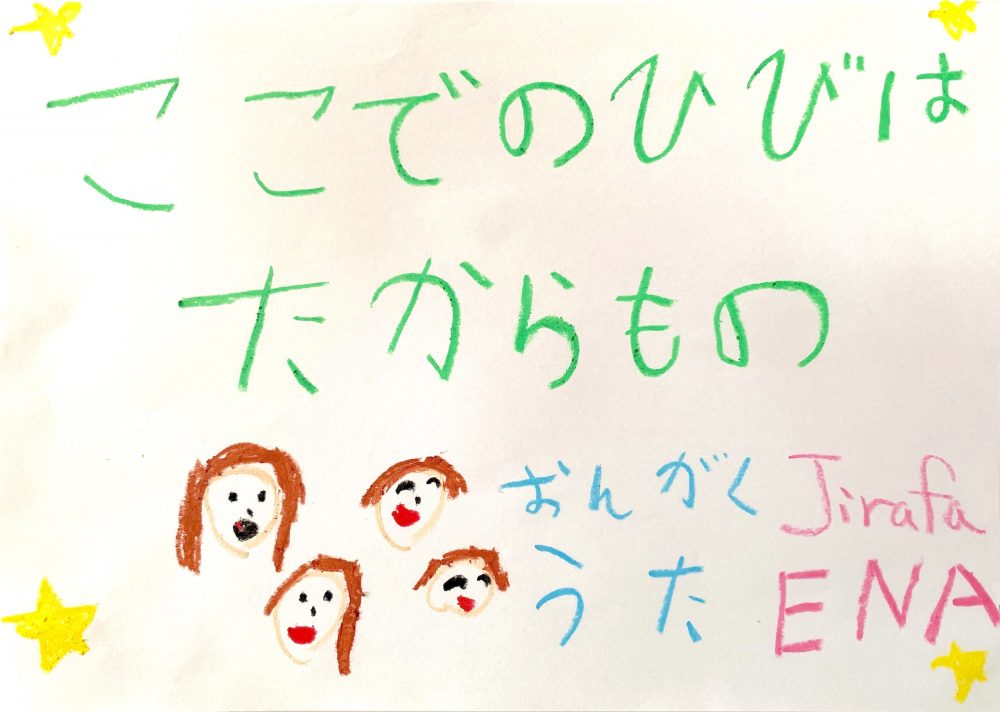 ここでのひびは
たからもの
おんがく Jirafa
うた ENA